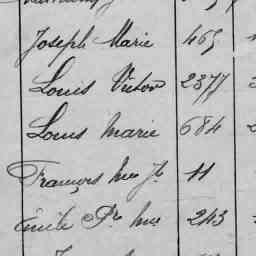 Joseph Marie 463
Louis Victor 2377
Louis Marie 684
François Mie Jh 11
Emile Pre Mie 243